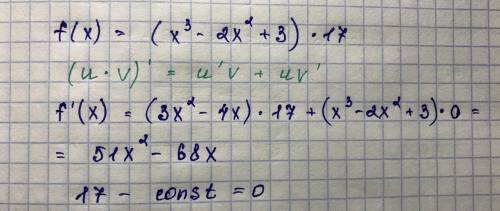 f(x) = (x³ - 2x² + 3) · 17
(u · v)' = u'v + uv'
f'(x) = (3x² - 4x) · 17 + (x³ - 2x² + 3) · 0 =
= 51x² - 68x
17 - const = 0